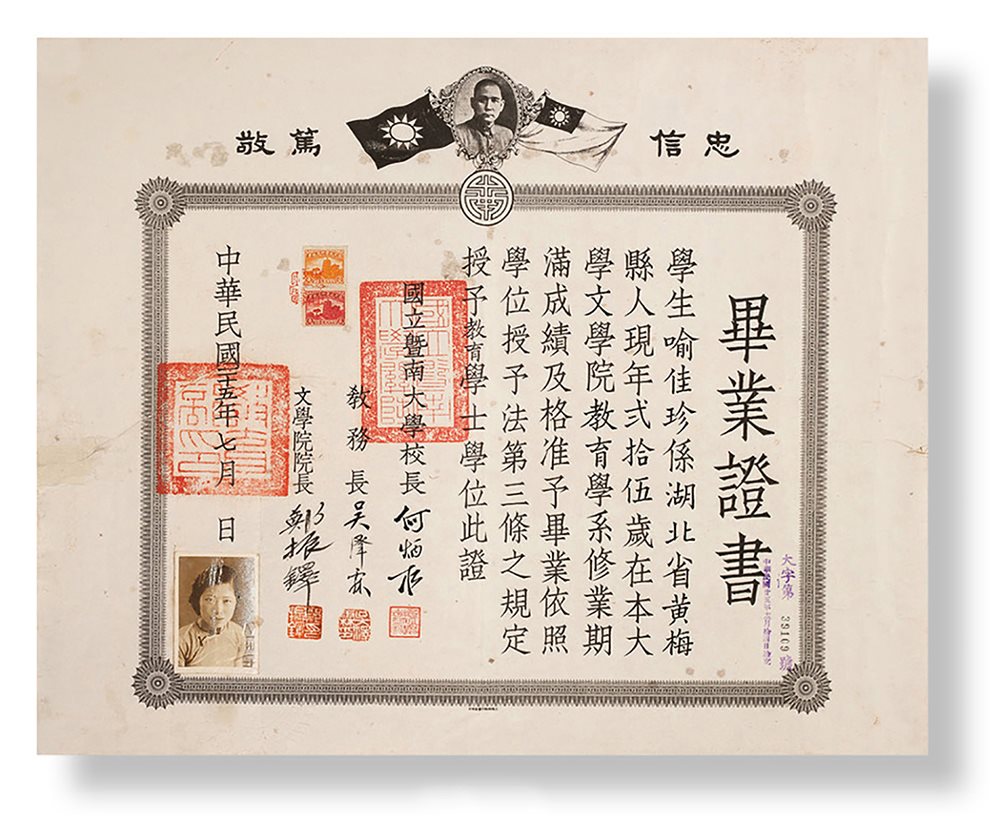 忠信
篤敬
畢業證書
學生喻佳珍係湖北省黃梅
縣人現年弍拾伍歲在本大
學文學院教育學系修業期
滿成績及格准予畢業依照
學位授予法第三條之規定
授予教育學士學位此證
國立暨南大學校長 何炳松
教務長 吳澤霖
文學院院長 鄭振鐸
中華民國二十五年七月 日
大字第 39169 號